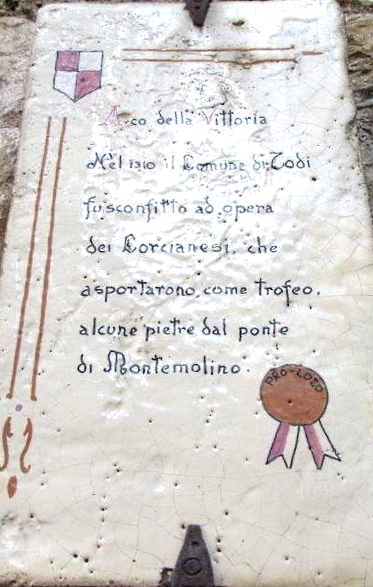 Arco della Vittoria
Nel 1310 il Comune di Todi
fu sconfitto ad opera
dei Corcianesi, che
asportarono, come trofeo,
alcune pietre dal ponte
di Montemolino.
PRO-LOCO